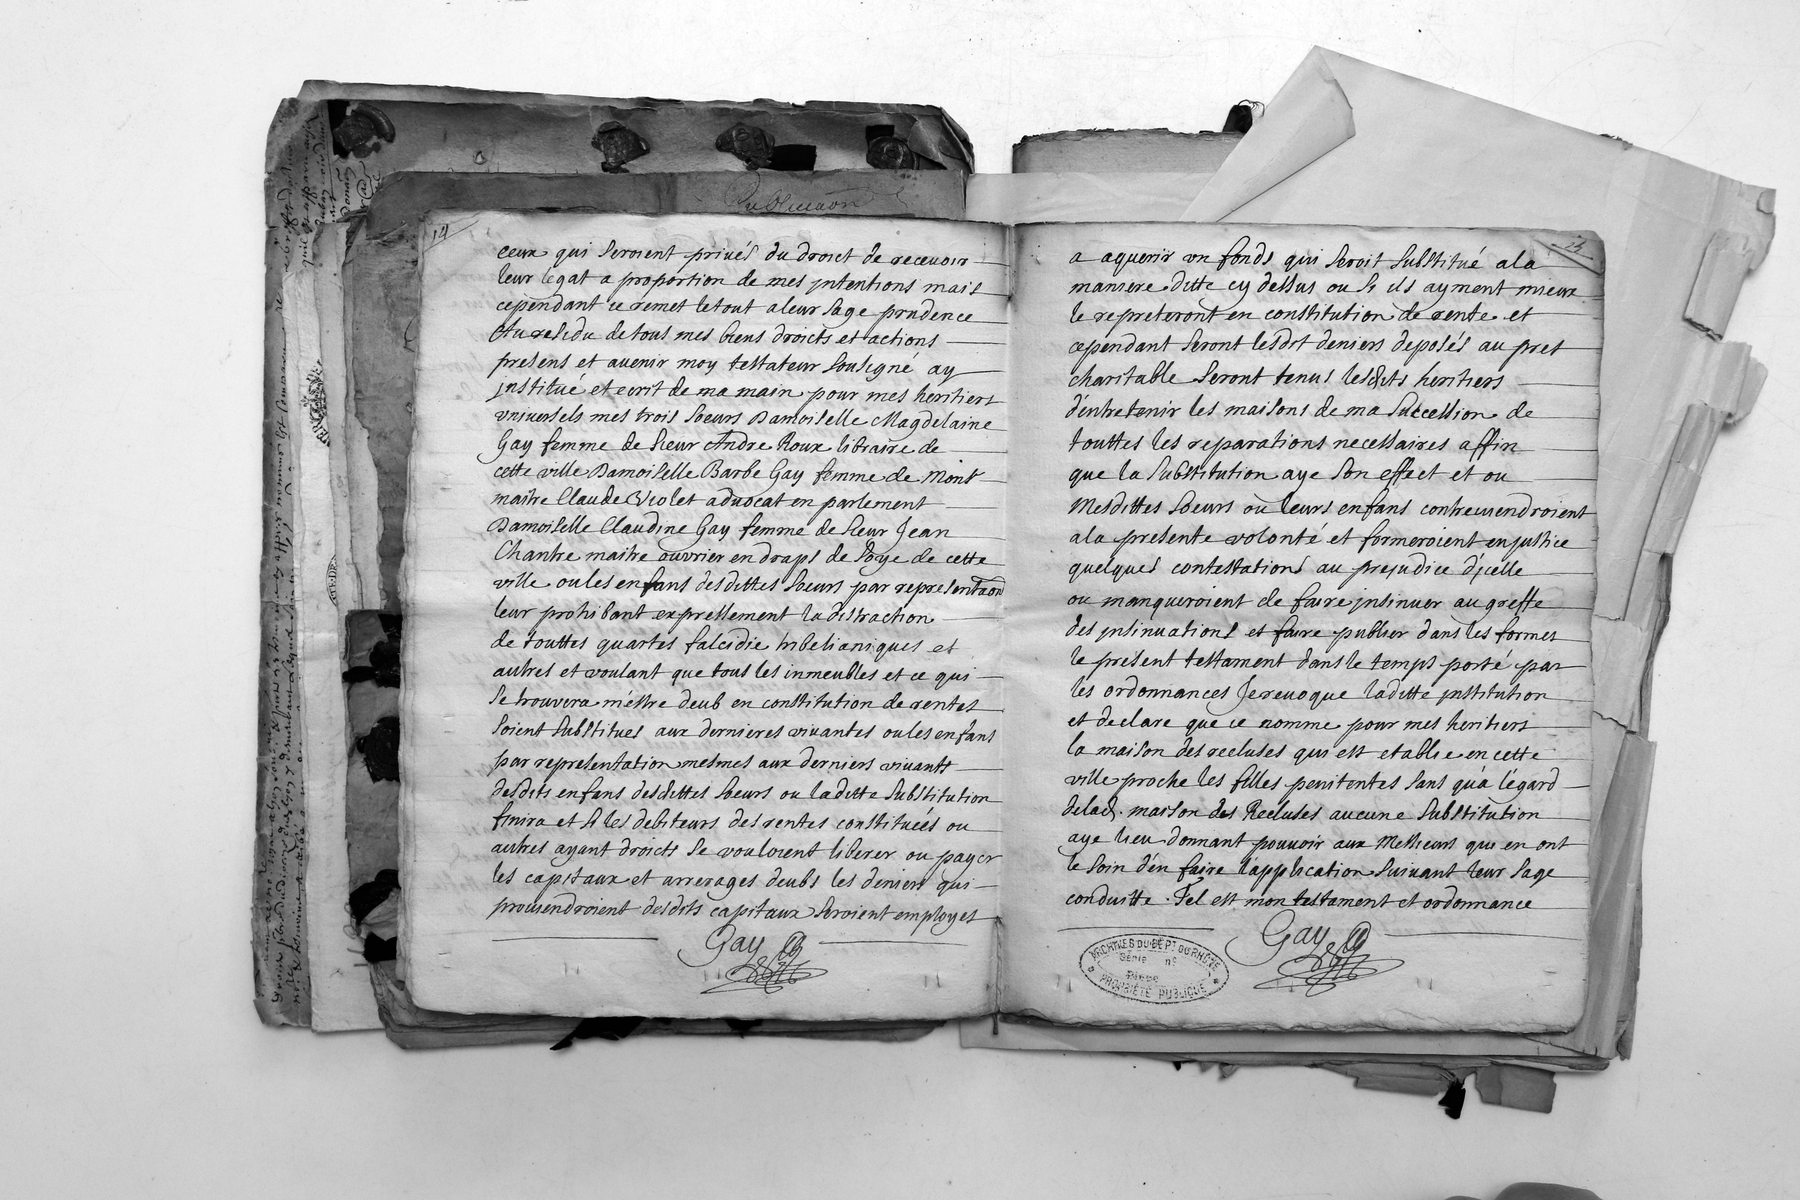 Publication
14
ceux qui seroient privés du droict de recevoir
leur legat a proportion de mes jntentions mais
cependant ie remet le tout a leur sage prudence
Au residu de tous mes biens droicts et actions
presens et avenir moy testateur sousigné ay
jnstitué et ecrit de ma main pour mes heritiers
vniversels mes trois soeurs Damoiselle Magdelaine
Gay femme de sieur Andre Roux libraire de
cette ville Damoiselle Barbe Gay femme de Monsr
maitre Claude Violet advocat en parlement
Damoiselle Claudine Gay femme de sieur Jean
Chantre maitre ouvrier en draps de soye de cette
ville ou les enfans desdittes soeurs par representaon
leur prohibant expressement la distraction
de touttes quartes falcidie tribelianiques et
autres et voulant que tous les immeubles et ce qui
se trouvera m'éstre deub en constitution de rentes
soient substitues aux dernieres vivantes ou les enfans
par representation mesmes aux derniers vivants
desdits enfans desdittes soeurs ou laditte substitution
finira et si les debiteurs des rentes constituées ou
autres ayant droicts se vouloient liberer ou payer
les capitaux et arrerages deubs les deniers qui
proviendroient desdits capitaux seroient employes
Gay
25
a aquerir vn fonds qui seroit substitué a la
maniere ditte cy dessus ou si ils ayment mieux
le repreteront en constitution de rente et
cependant seront lesdts deniers deposés au prest
charitable seront tenus lesdits heritiers
d'entretenir les maisons de ma succession de
touttes les reparations necessaires affin
que la substitution aye son effect et ou
mesdittes soeurs ou leurs enfans contreviendroient
a la presente volonté et formeroient en justice
quelques contestations au prejudice d'jcelle
ou manqueroient de faire jnsinuer au greffe
des jnsinuations et faire publier dans les formes
le present testament dans le temps porté par
les ordonnances Je revoque laditte jnstitution
et declare que ie nomme pour mes heritiers
la maison des recluses qui est etablie en cette
ville proche les filles penitentes sans qu'a l'égard
de lad. maison des Recluses aucune substitution
aye lieu donnant pouvoir aux Messieurs qui en ont
le soin d'en faire l'application suivant leur sage
conduitte. Tel est mon testament et ordonnance
Gay
ARCHIVES DU DEPT DU RHONE
Série nº
Pièce
PROPRIÉTÉ PUBLIQUE